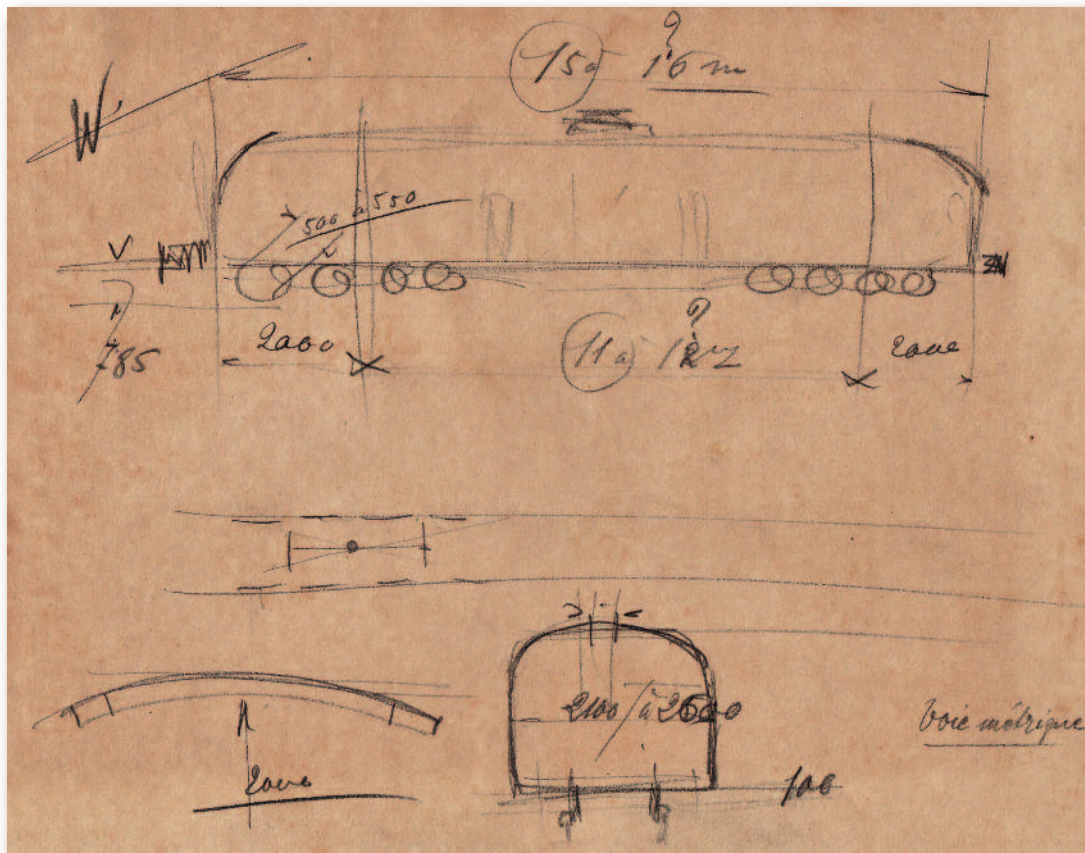 15 à 16 m
?
W
500 à 550
785
2000
11 à 12
?
2000
2100 / à 2500
voie métrique
2000
100